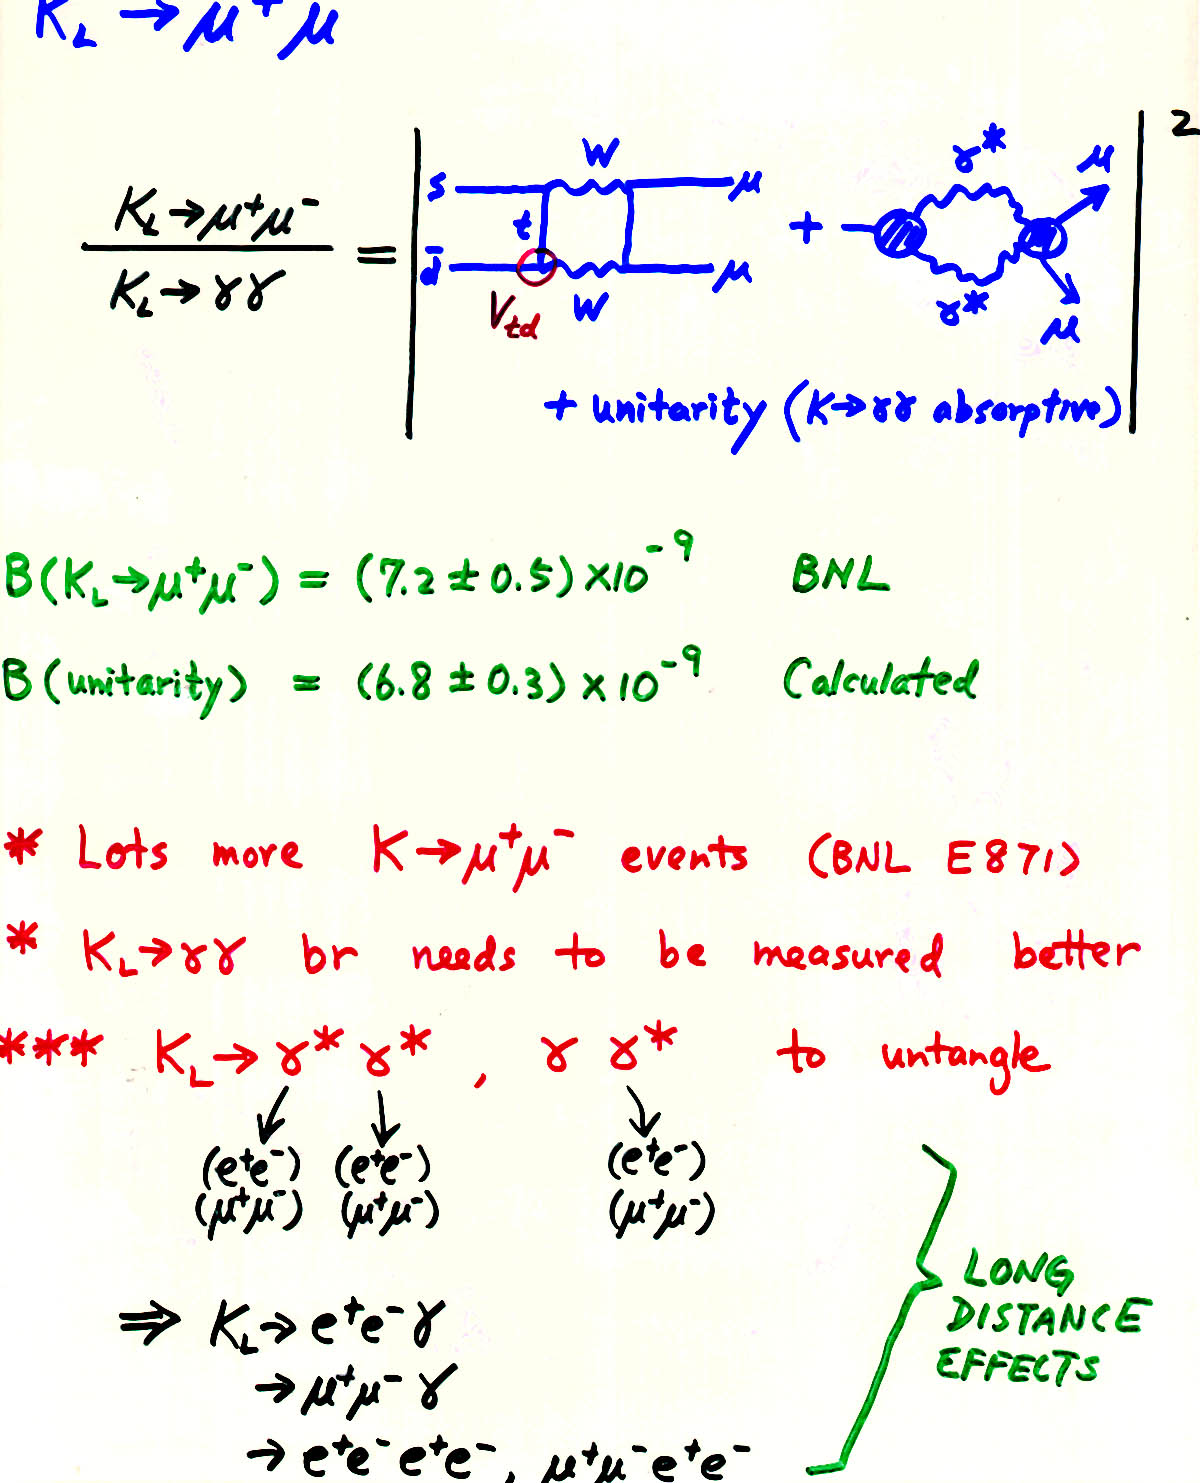 K_L → μ⁺μ
K_L → μ⁺μ⁻ / K_L → γγ = | |²
s W μ
t
d̄ W μ
V_td
+ γ* μ
γ* μ
+ unitarity (K → γγ absorptive)
B(K_L → μ⁺μ⁻) = (7.2 ± 0.5) × 10⁻⁹ BNL
B(unitarity) = (6.8 ± 0.3) × 10⁻⁹ Calculated
* Lots more K → μ⁺μ⁻ events (BNL E871)
* K_L → γγ br needs to be measured better
*** K_L → γ* γ*, γ γ* to untangle
(e⁺e⁻) (e⁺e⁻) (e⁺e⁻)
(μ⁺μ⁻) (μ⁺μ⁻) (μ⁺μ⁻)
⇒ K_L → e⁺e⁻γ
→ μ⁺μ⁻γ
→ e⁺e⁻e⁺e⁻, μ⁺μ⁻e⁺e⁻
LONG
DISTANCE
EFFECTS